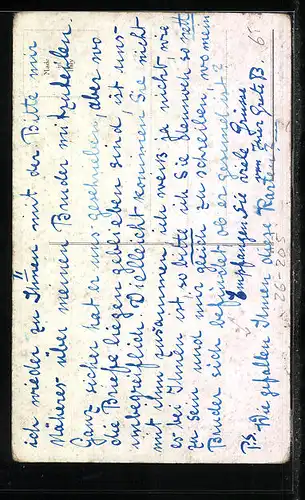 ich wieder zu Ihnen mit der Bitte mir
Näheres über meinen Bruder mitzuteilen.
Ganz sicher hat er uns geschrieben, aber wo
die Briefe liegen geblieben sind ist uns
unbegreiflich. Vielleicht kommen Sie nicht
mit ihm zusammen ich weiß ja nicht, wie
er bei Ihnen ist so bitte ich Sie dennoch so nett
zu sein und mir gleich zu schreiben, wo mein
Bruder sich befindet ob er gesund ist?
Empfangen Sie viele Grüsse
von Ihrer Grete B.
P.S. Wie gefallen Ihnen diese Karten?
Made
26-205